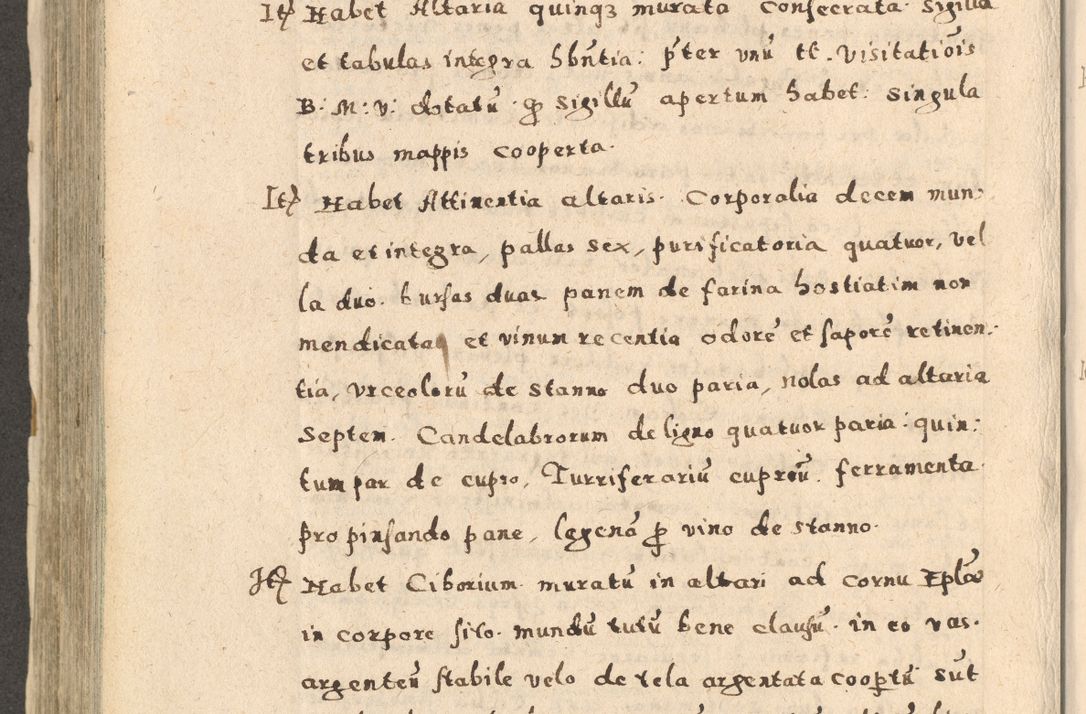 Itẽ Habet Altaria quinqз murata Consecrata. Sigilla
et tabulas integra hbñtia: p̃ter unũ tt. Visitatiõis
B: M: V: dotatũ qd Sigillũ apertum habet. Singula
tribus mappis cooperta.
Itẽ Habet Attinentia altaris. Corporalia decem mun:
da et integra, pallas sex, purificatoria quatuor, vel
la duo. bursas duas panem de farina hostiatim non
mendicata et vinum recentia odorẽ et saporẽ retinen:
tia, Urceolorũ de stanno duo paria, nolas ad altaria
septem. Candelabrorum de ligno quatuor paria: quin:
tum par de cupro, Turriferariũ cupreũ. ferramenta
pro pinsando pane, lagenã p̃ vino de stanno.
Itẽ Habet Ciborium muratũ in altari ad cornu Eplæ
in corpore sito. mundũ tutũ bene clausũ. in eo vas.
argenteũ stabile velo de tela argentata coop̃tũ sũt